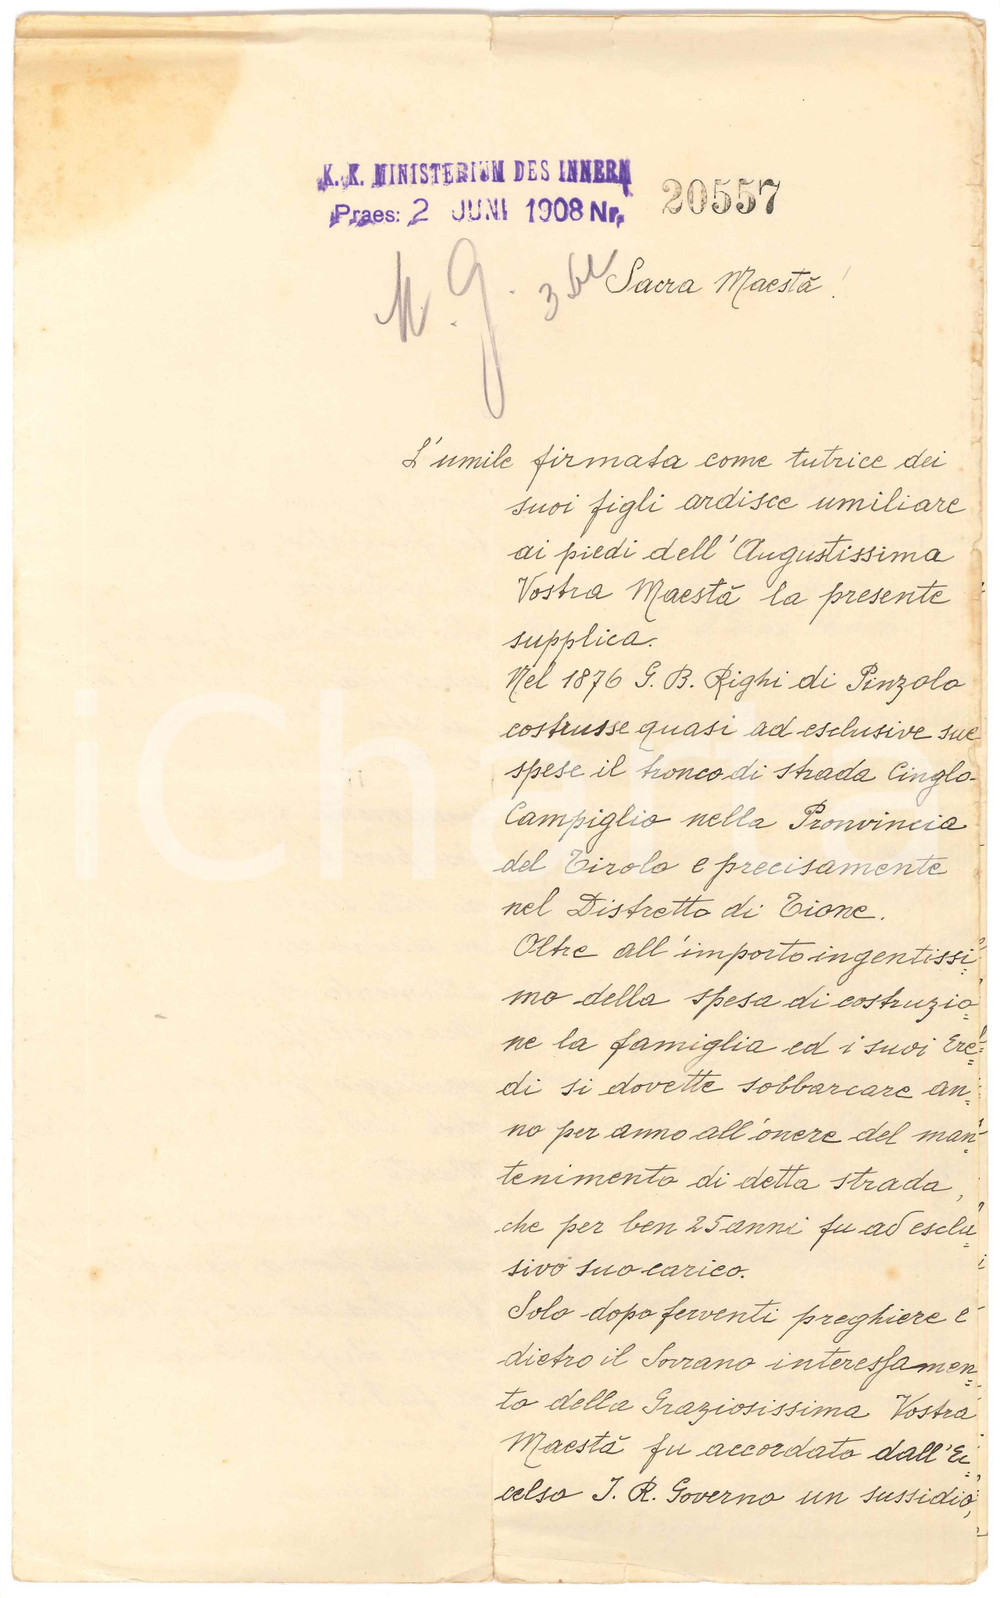 K. K. MINISTERIUM DES INNERN
Praes: 2 JUNI 1908 Nr. 20557
Sacra Maestà!
L'umile firmata come tutrice dei
suoi figli ardisce umiliare
ai piedi dell'Augustissima
Vostra Maestà la presente
supplica.
Nel 1876 G. B. Righi di Pinzolo
costrusse quasi ad esclusive sue
spese il tronco di strada Cinglo-
Campiglio nella Pronvincia
del Tirolo e precisamente
nel Distretto di Tione.
Oltre all'importo ingentissi=
mo della spesa di costruzio=
ne la famiglia ed i suoi Ere=
di si dovette sobbarcare an=
no per anno all'onere del man=
tenimento di detta strada,
che per ben 25 anni fu ad esclu=
sivo suo carico.
Solo dopo ferventi preghiere e
dietro il Sovrano interessamen=
to della Graziosissima Vostra
Maestà fu accordato dall'Ec=
celso I. R. Governo un sussidio,
iCharta